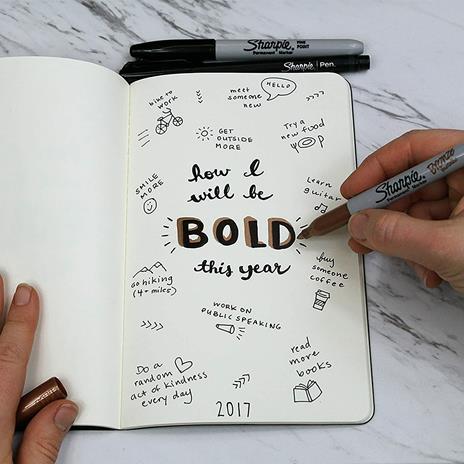 Sharpie
FINE POINT
Permanent Marker
Sharpie Pen.
bike to
work
meet
someone
new
HELLO
GET
OUTSIDE
MORE
Try a
new food
SMILE
MORE
how I
will be
BOLD
this year
Learn
guitar
Sharpie
Permanent Marker
Bronze
go hiking
(4+ miles)
buy
someone
coffee
WORK ON
PUBLIC SPEAKING
Do a
random
act of kindness
every day
read
more
books
2017